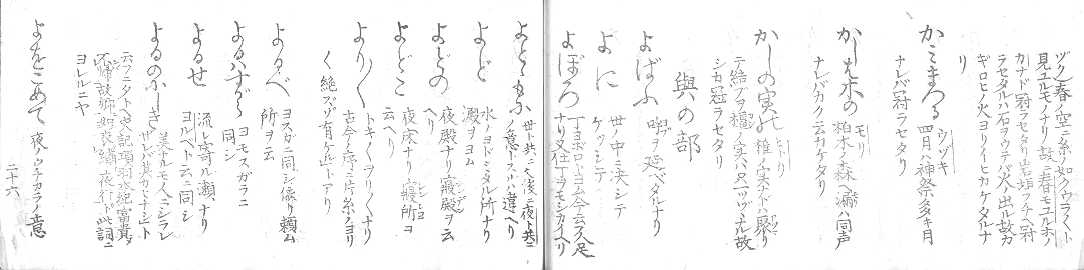 ヅク春ノ空ニ糸ノ如クウラウラト
見ユルモノナリ故ニ春モユルホノ
カナドノ冠ラセタリ岩垣フチノ冠
ラセタルハ石ヲウテバ火ノ出ル故カ
ギロヒノ火ヨリイヒカケタルナ
リ
かみまつる 四月 ウヅキ
四月ハ神祭多キ月
ナレバ冠ラセタリ
かしは木の もり
柏木ノ森ヘ漏ハ同声
ナレバカク云カケタリ
かしの実の ヒトリ
椎ノ実ナドハ殻ニ
テ結ブヲ橿ノ実ハ只一ツヅヽナル故
シカ冠ラセタリ
與の部
よばふ 呼ヲ延ベタルナリ
よに 世ノ中ニ決シテ
ケッシテ
よぼろ 丁ヨボロト云今云人足
ナリ又仕丁ヲモシカイヘリ
よとゝもに 世ト共ニ也後ニ夜ト共ニ
ノ意トスルハ違ヘリ
よど 水ノヨドミタル所ナリ
澱ヲヨム
よどの 夜殿ナリ寝殿ヲ云
ヘリ
よどこ 夜床ナリ寝所ヲ
云ヘリ
より〳〵 トキ〳〵ヲリ〳〵ナリ
古今ノ序ニ片糸ノヨリ
〳〵絶ズゾ有ケルトアリ
よるべ ヨスガニ同シ依リ頼ム
所ヲ云
よるハすがら ヨモスガラニ
同シ
よるせ 流レ寄ル瀬ナリ
ヨルベト云ニ同シ
よるのにしき 美ナルモ人ニシラレ
ザレバ其カヒナシト
云フニタトヘ史記項羽本紀富貴
不帰故郷如衣繍夜行ト此詞ニ
ヨレルニヤ
よをこめて 夜ノウチカラノ意
二十六